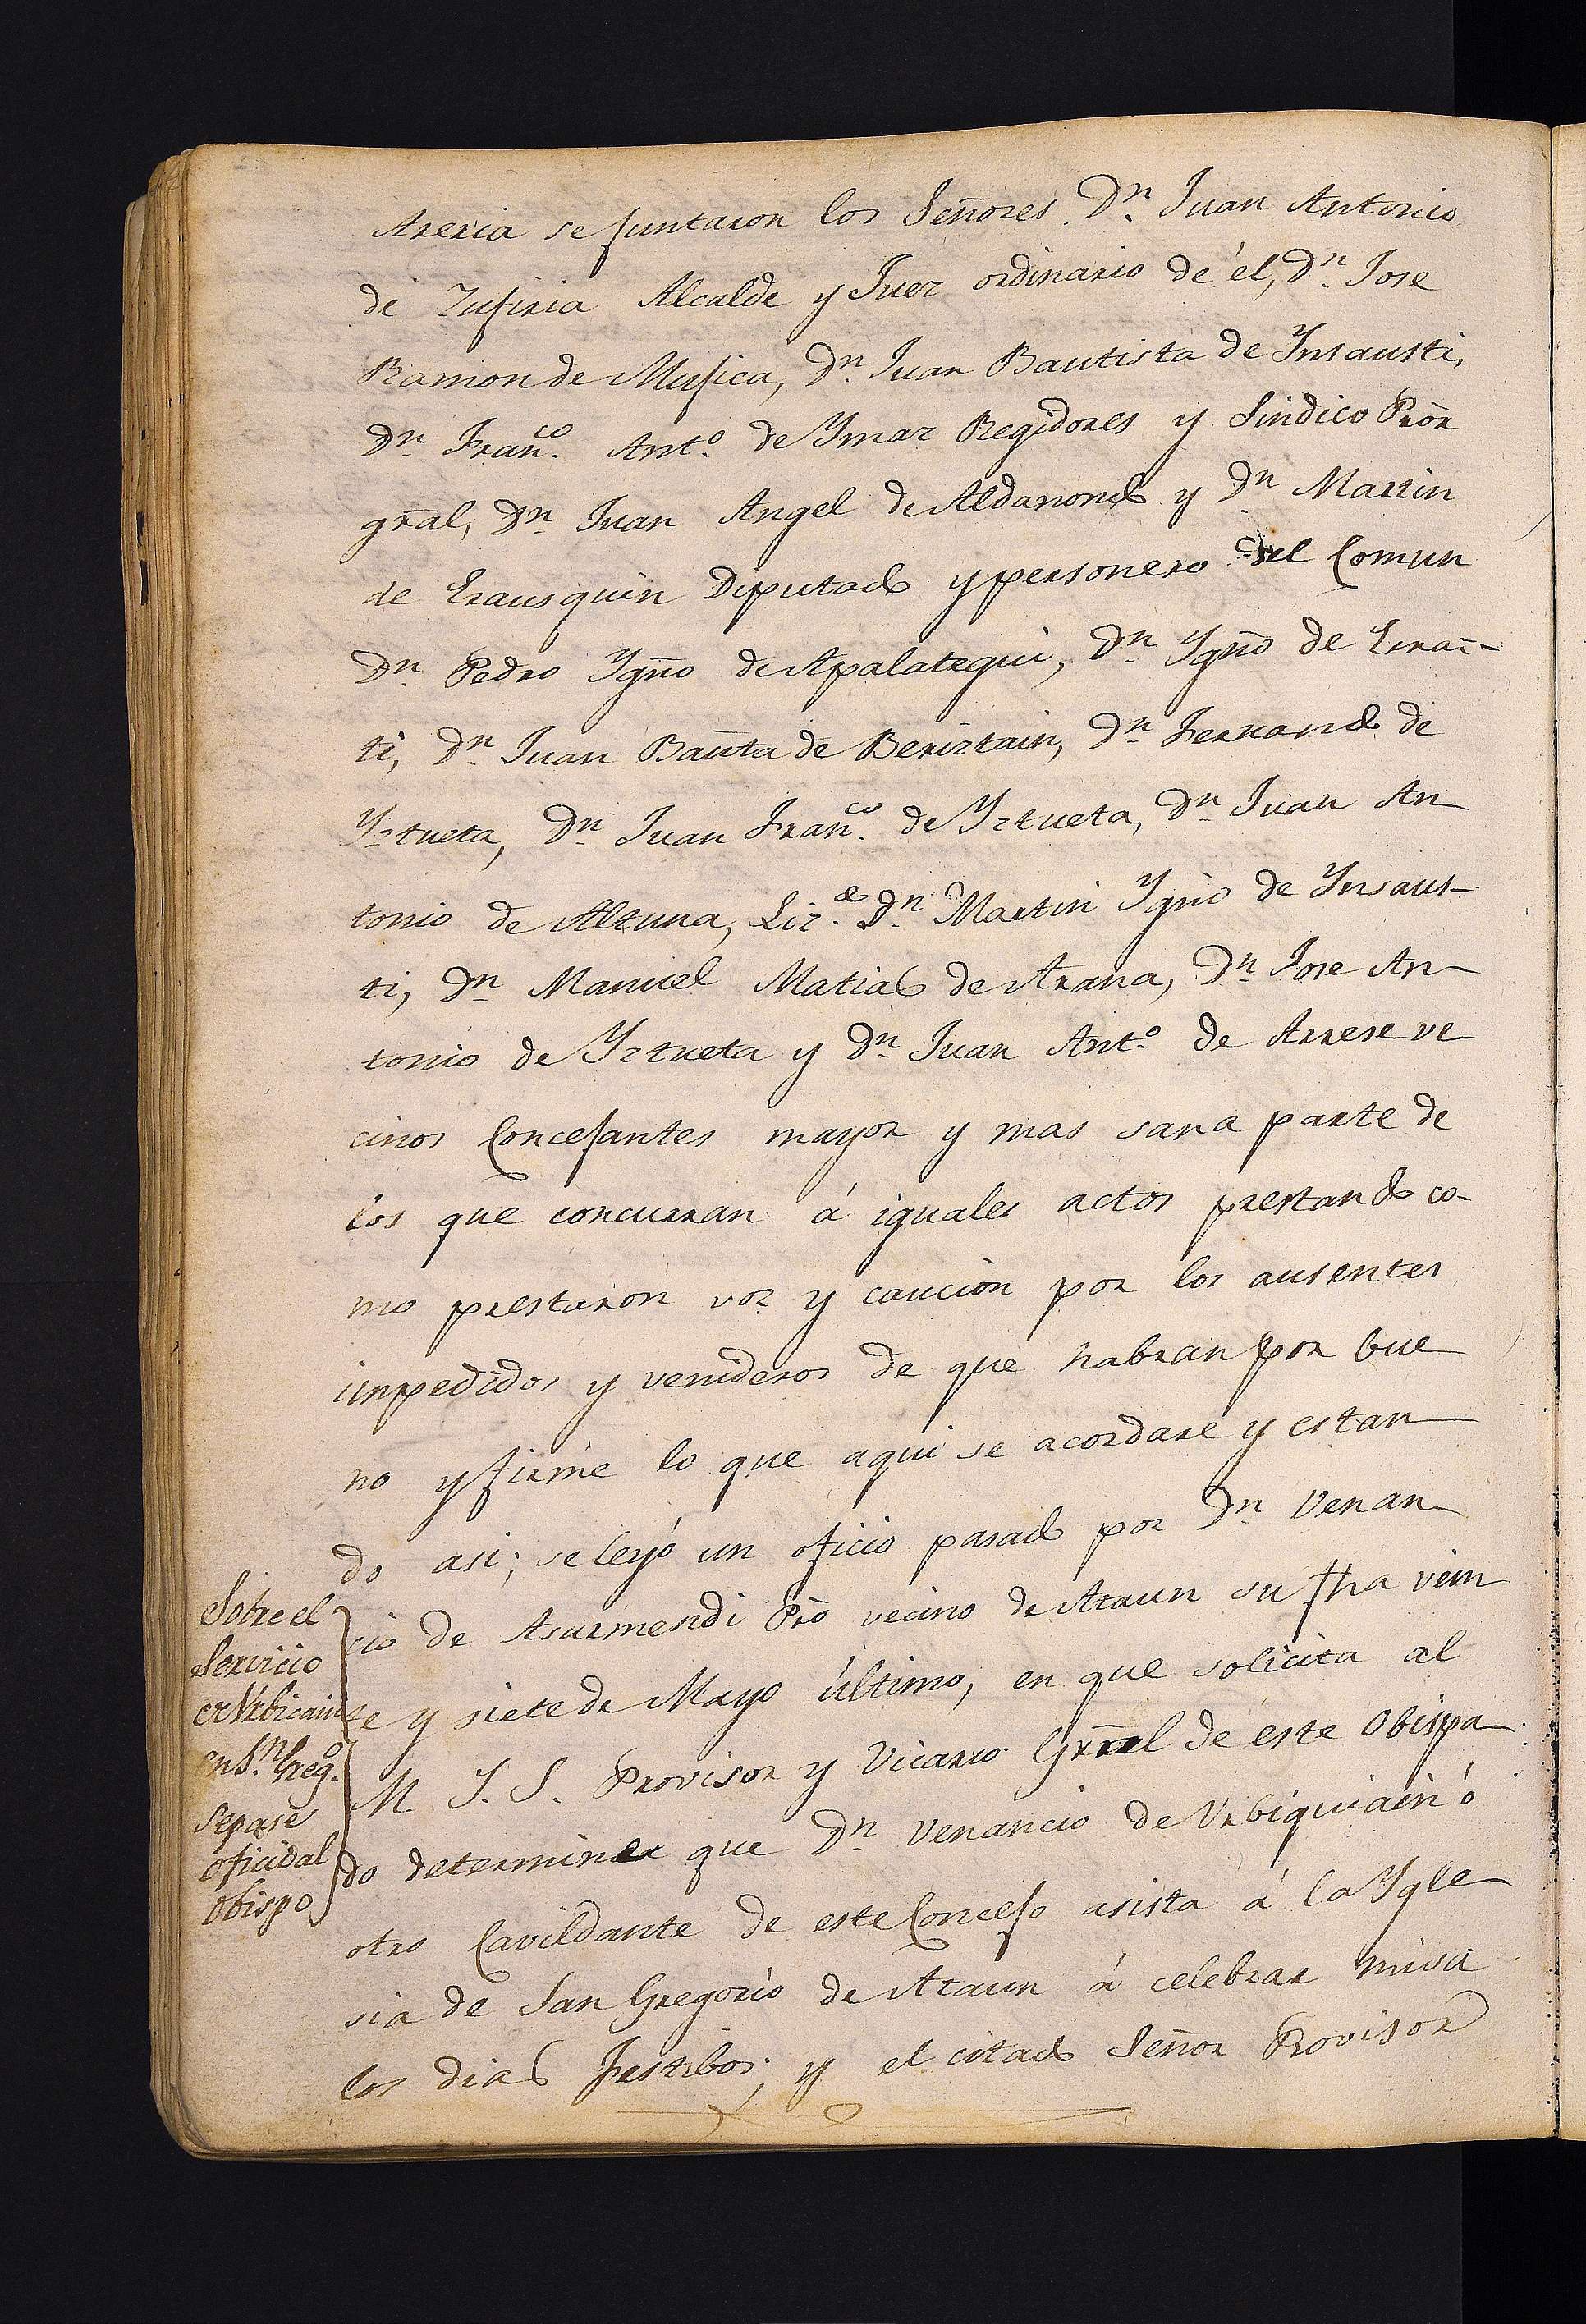 Areria se juntaron los Señores Dn. Juan Antonio
de Zufiria Alcalde y Juez ordinario de él, Dn. Jose
Ramon de Mujica, Dn. Juan Bautista de Ynsausti,
Dn. Franco. Anto. de Ymaz Regidores y Sindico Pror
gral, Dn. Juan Angel de Aldanondo y Dn. Martin
de Erausquin Diputado y personero del Comun
Dn. Pedro Ygno de Apalategui, Dn. Ygno de
ti, Dn. Juan Bauta de Beriztain, Dn. Fernando de
Yztueta, Dn. Juan Franco. de Yztueta, Dn. Juan An-
tonio de Altuna, Lizdo. Dn. Martin Ygno de Ynsaus-
ti, Dn. Manuel Matias de Arana, Dn. Jose An-
tonio de Yztueta y Dn. Juan Anto. de Arrese ve
cinos Concejantes mayor y mas sana parte de
los que concurran á iguales actos prestando co-
mo prestaron voz y caucion por los ausentes
impedidos y venideros de que habran por bue
no y firme lo que aqui se acordare y estan
do asi; se leyó un oficio pasado por Dn. Venan
cio de Asurmendi Pro vecino de Ataun su fha vein
te y siete de Mayo último, en que solicita al
M. Y. S. Provisor y Vicario Gral de este Obispa
do determinar que Dn. Venancio de Urbiquiain ó
otro Cavildante de este Concejo asista á la Ygle
sia de San Gregorio de Ataun á celebrar misa
los dias festibos; y el citado Señor Provisor
Sobre el
Servicio
en Sn. Grego.
Se pase
oficio al
Obispo